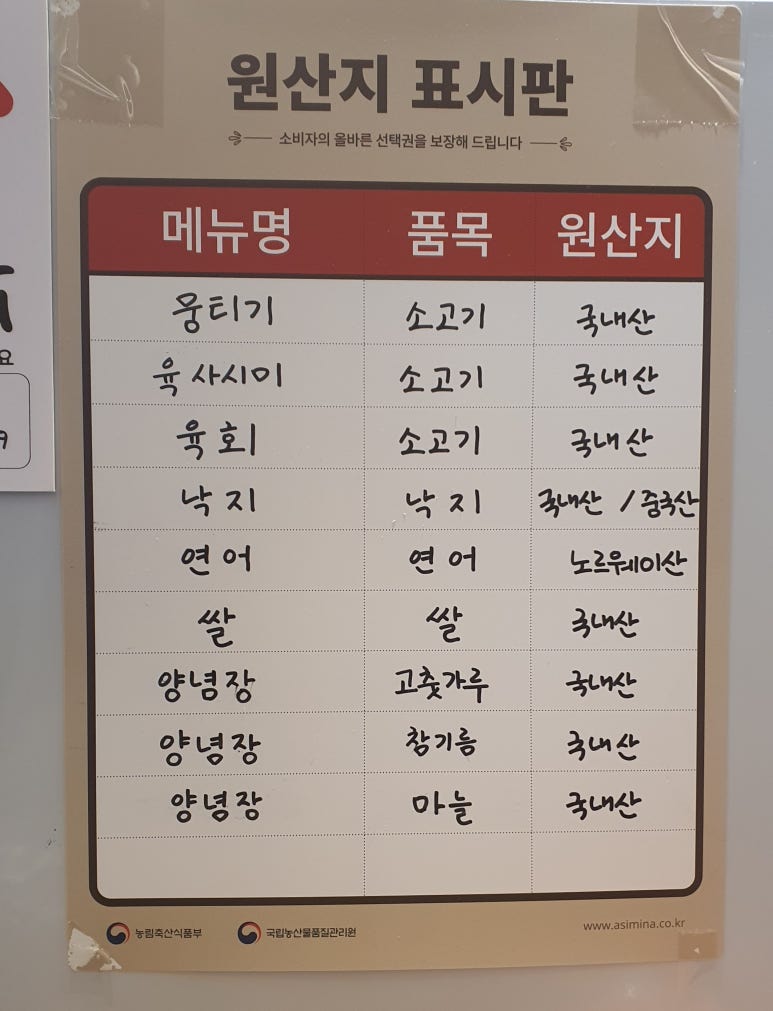 원산지 표시판
소비자의 올바른 선택권을 보장해 드립니다
메뉴명 품목 원산지
뭉티기 소고기 국내산
육사시미 소고기 국내산
육회 소고기 국내산
낙지 낙지 국내산 / 중국산
연어 연어 노르웨이산
쌀 쌀 국내산
양념장 고춧가루 국내산
양념장 참기름 국내산
양념장 마늘 국내산
농림축산식품부 국립농산물품질관리원 www.asimina.co.kr
요
9